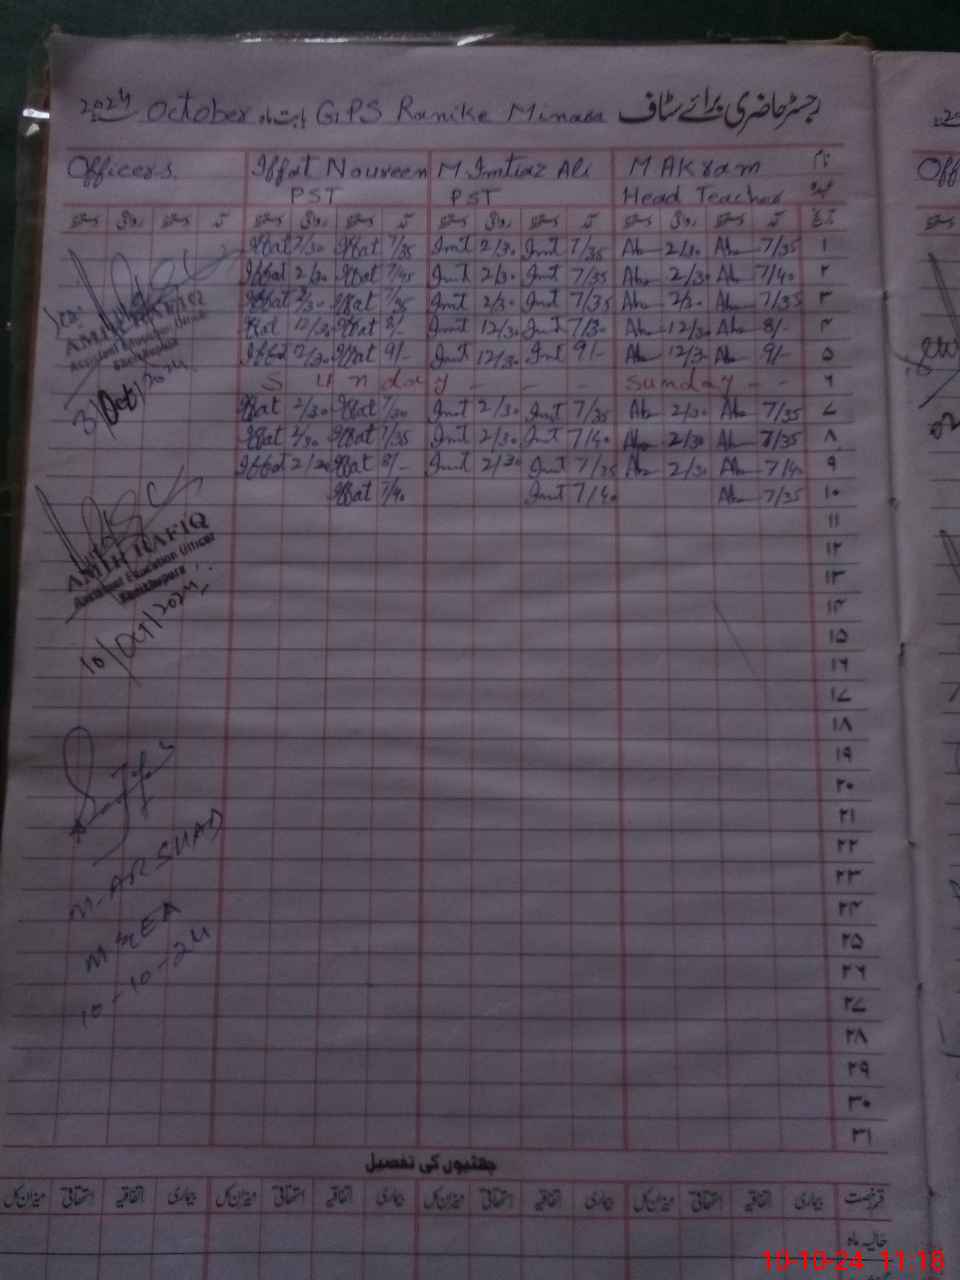 رجسٹر حاضری برائے سٹاف GPS Ranike Minara بابت ماہ October 2024
Officers. Iffat Noureen M Imtiaz Ali M AKram نام
PST PST Head Teacher عہدہ
دستخط روانگی دستخط آمد دستخط روانگی دستخط آمد دستخط روانگی دستخط آمد دستخط روانگی دستخط آمد تاریخ
Iffat 2/30 Iffat 7/35 Imt 2/30 Imt 7/35 Ak 2/30 Ak 7/35 ۱
Iffat 2/30 Iffat 7/45 Imt 2/30 Imt 7/35 Ak 2/30 Ak 7/40 ۲
Iffat 2/30 Iffat 7/35 Imt 2/30 Imt 7/35 Ak 2/30 Ak 7/35 ۳
Iffat 12/30 Iffat 8/- Imt 12/30 Imt 7/30 Ak 12/30 Ak 8/- ۴
Iffat 12/30 Iffat 9/- Imt 12/30 Imt 9/- Ak 12/30 Ak 9/- ۵
Sunday - - - Sunday - - ۶
Iffat 2/30 Iffat 7/30 Imt 2/30 Imt 7/35 Ak 2/30 Ak 7/35 ۷
Iffat 2/30 Iffat 7/35 Imt 2/30 Imt 7/40 Ak 2/30 Ak 7/35 ۸
Iffat 2/30 Iffat 8/- Imt 2/30 Imt 7/35 Ak 2/30 Ak 7/40 ۹
Iffat 7/40 Imt 7/40 Ak 7/35 ۱۰
۱۱
۱۲
۱۳
۱۴
۱۵
۱۶
۱۷
۱۸
۱۹
۲۰
۲۱
۲۲
۲۳
۲۴
۲۵
۲۶
۲۷
۲۸
۲۹
۳۰
۳۱
AMIR RAFIQ
Assistant Education Officer
3/Oct/2024
AMIR RAFIQ
Assistant Education Officer
10/Oct/2024
M. ARSHAD
MEA
10-10-24
چھٹیوں کی تفصیل
میزان کل استحقاقی اتفاقیہ بیماری میزان کل استحقاقی اتفاقیہ بیماری میزان کل استحقاقی اتفاقیہ بیماری میزان کل استحقاقی اتفاقیہ بیماری قسم رخصت
حالیہ ماہ
10-10-24 11:18